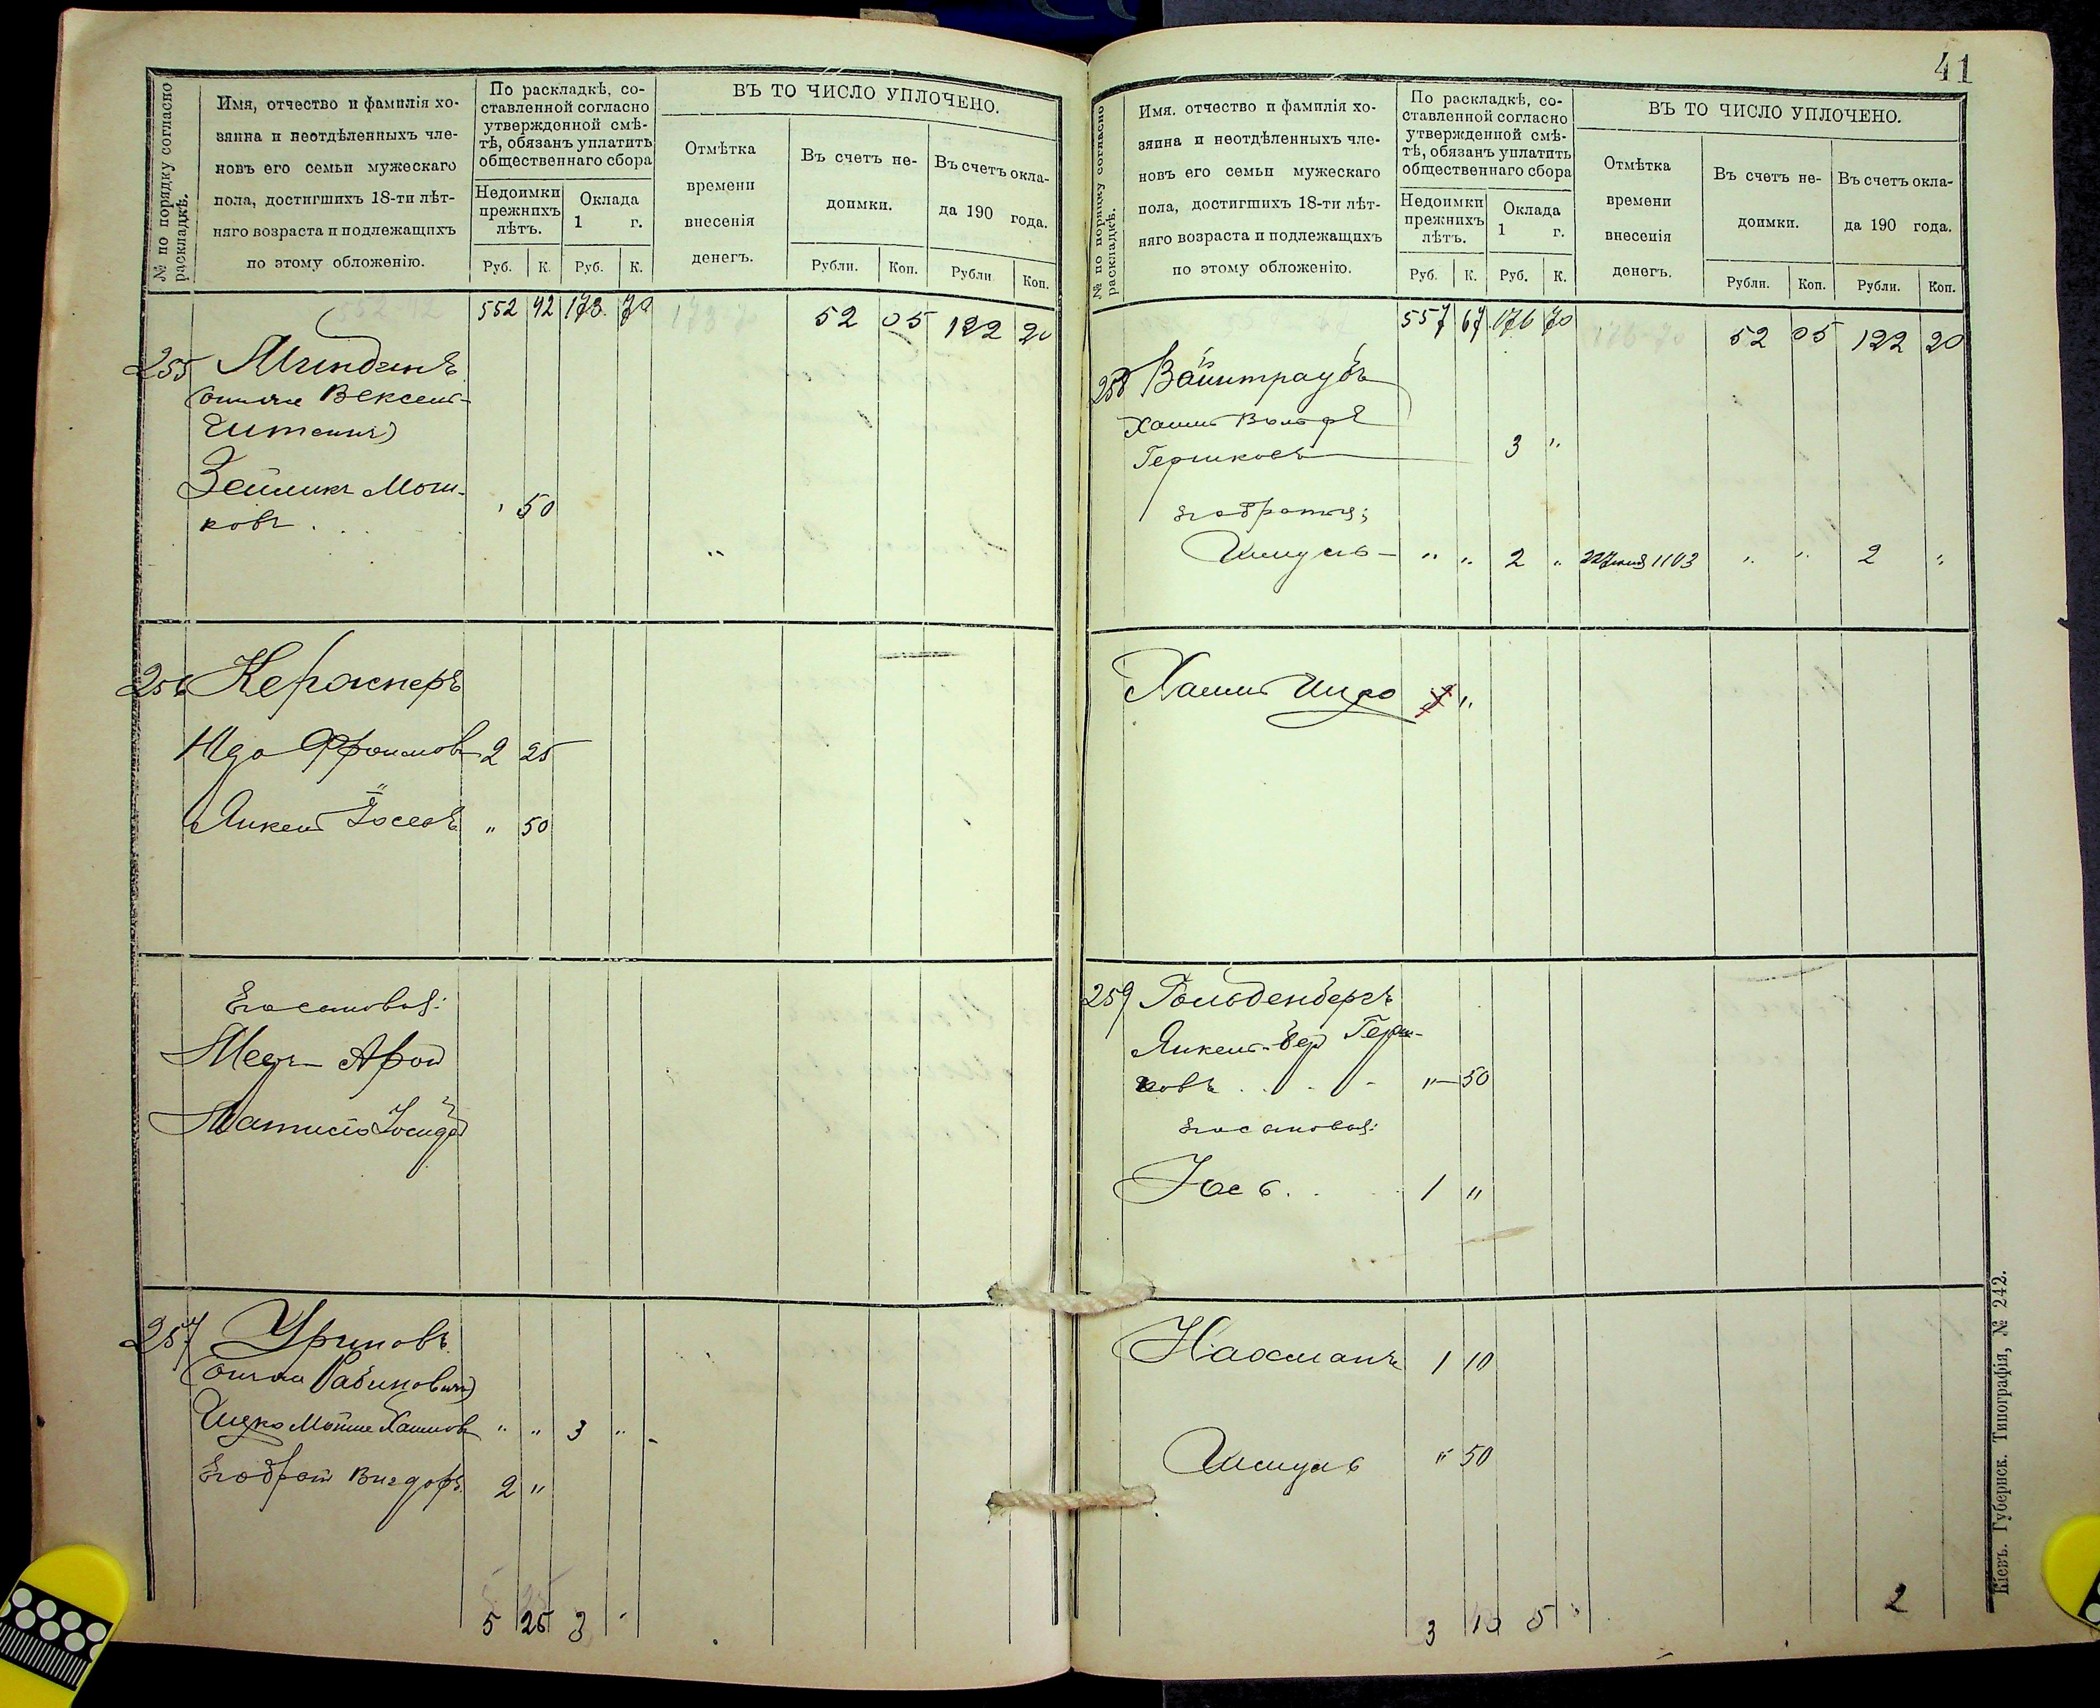 № по порядку согласно раскладкѣ.
Имя, отчество и фамилія хо-
зяина и неотдѣленныхъ чле-
новъ его семьи мужескаго
пола, достигшихъ 18-ти лѣт-
няго возраста и подлежащихъ
по этому обложенію.
По раскладкѣ, со-
ставленной согласно
утвержденной смѣ-
тѣ, обязанъ уплатить
общественнаго сбора
Недоимки
прежнихъ
лѣтъ.
Оклада
1 г.
Руб. К. Руб. К.
ВЪ ТО ЧИСЛО УПЛОЧЕНО.
Отмѣтка
времени
внесенія
денегъ.
Въ счетъ не-
доимки.
Въ счетъ окла-
да 190 года.
Рубли. Коп. Рубли Коп.
552 42 173 70 52 05 122 20
255 Миндинъ
Зейликъ Мош-
ковъ . . . " 50
"
256
Шдо Фроимовъ 2 25
Янкель Іосевъ " 50
Его сыновья:
Меер Арон
257 Уриновъ
(онъ же Рабиновичъ)
Ицко Мошке Хаимовъ " " 3 "
Его брат Вигдоръ 2 "
5 25 3 "
41
№ по порядку согласно раскладкѣ.
Имя. отчество и фамилія хо-
зяина и неотдѣленныхъ чле-
новъ его семьи мужескаго
пола, достигшихъ 18-ти лѣт-
няго возраста и подлежащихъ
по этому обложенію.
По раскладкѣ, со-
ставленной согласно
утвержденной смѣ-
тѣ, обязанъ уплатить
общественнаго сбора
Недоимки
прежнихъ
лѣтъ.
Оклада
1 г.
Руб. К. Руб. К.
ВЪ ТО ЧИСЛО УПЛОЧЕНО.
Отмѣтка
времени
внесенія
денегъ.
Въ счетъ не-
доимки.
Въ счетъ окла-
да 190 года.
Рубли. Коп. Рубли. Коп.
557 67 176 70 52 05 122 20
258 Вайнтраубъ
Хаим Вольфъ
Гершковъ 3 "
Его братья:
Шмуль - " " 2 " 1103 " " 2 "
Хаим Ицко "
259 Гольденбергъ
Янкель-Бер Герш-
ковъ . . . - " 50
Его сыновья:
Іось . . . 1 "
Нахманъ 1 10
Шмуль " 50
3 10 5 " 2
Кіевъ. Губернск. Типографія, № 242.